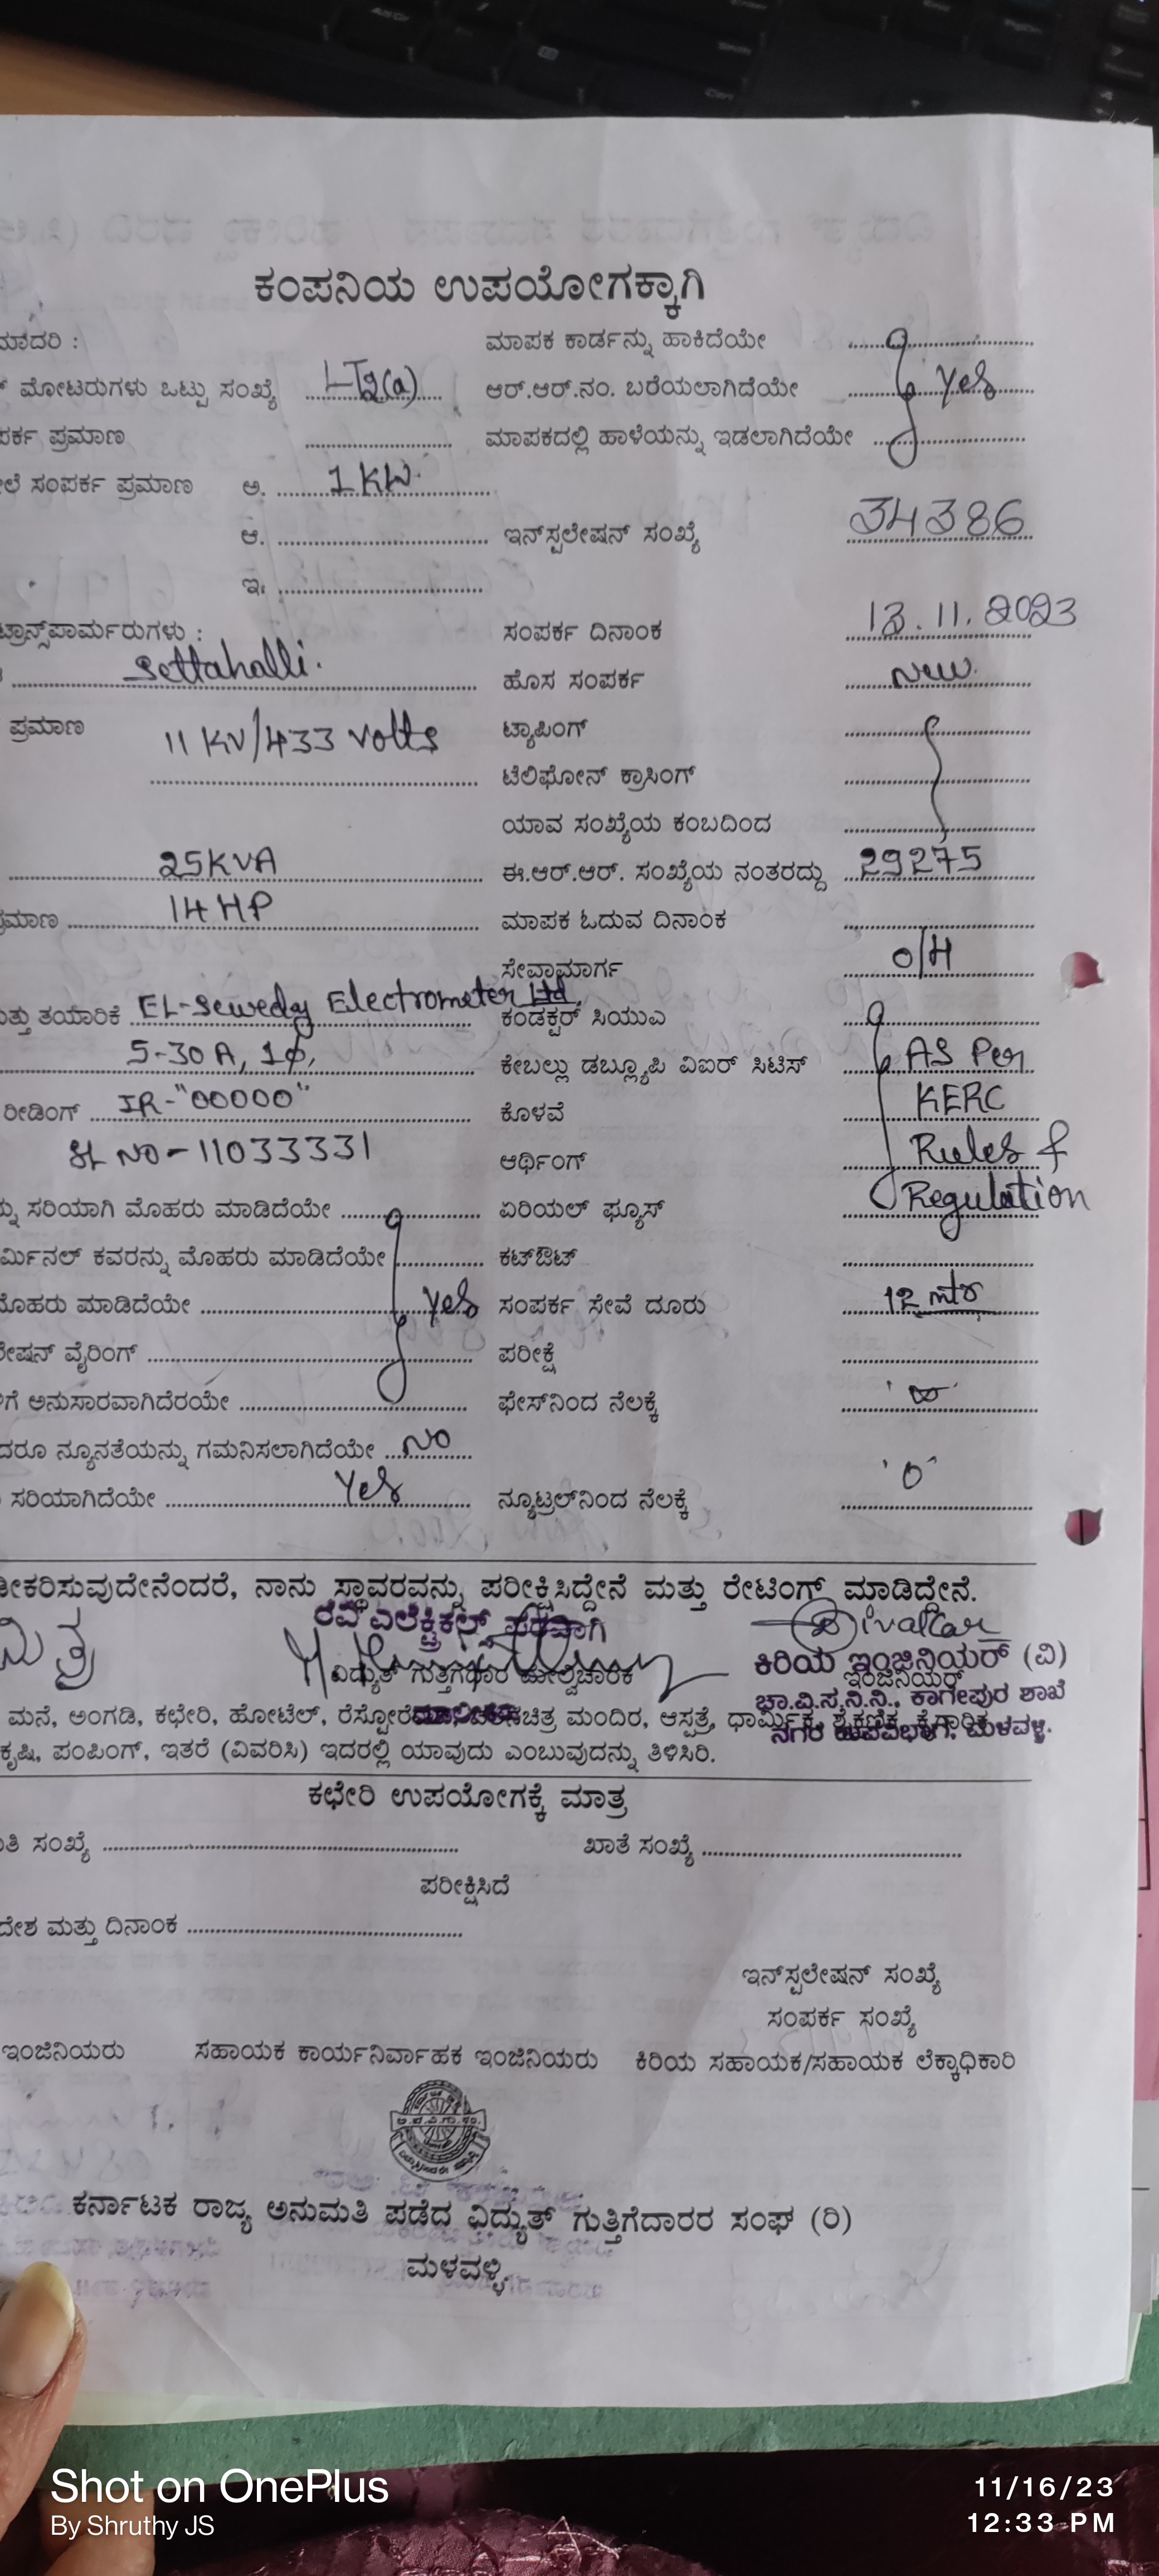 ಕಂಪನಿಯ ಉಪಯೋಗಕ್ಕಾಗಿ
ಮಾದರಿ : ಮಾಪಕ ಕಾರ್ಡನ್ನು ಹಾಕಿದೆಯೇ
ಮೋಟರುಗಳು ಒಟ್ಟು ಸಂಖ್ಯೆ LT2(a) ಆರ್.ಆರ್.ನಂ. ಬರೆಯಲಾಗಿದೆಯೇ Yes
ಪರ್ಕ ಪ್ರಮಾಣ ಮಾಪಕದಲ್ಲಿ ಹಾಳೆಯನ್ನು ಇಡಲಾಗಿದೆಯೇ
ಲೆ ಸಂಪರ್ಕ ಪ್ರಮಾಣ ಅ. 1KW
ಆ. ಇನ್‌ಸ್ಪಲೇಷನ್ ಸಂಖ್ಯೆ 34386
ಇ.
ಟ್ರಾನ್ಸ್‌ಪಾರ್ಮರುಗಳು : ಸಂಪರ್ಕ ದಿನಾಂಕ 13.11.2023
Settahalli. ಹೊಸ ಸಂಪರ್ಕ New
ಪ್ರಮಾಣ 11 KV/433 Volts ಟ್ಯಾಪಿಂಗ್
ಟೆಲಿಫೋನ್ ಕ್ರಾಸಿಂಗ್
ಯಾವ ಸಂಖ್ಯೆಯ ಕಂಬದಿಂದ
25KVA ಈ.ಆರ್.ಆರ್. ಸಂಖ್ಯೆಯ ನಂತರದ್ದು 29275
ಪ್ರಮಾಣ 14 HP ಮಾಪಕ ಓದುವ ದಿನಾಂಕ
ಸೇವಾಮಾರ್ಗ O/H
ತ್ತು ತಯಾರಿಕೆ EL-Sewedy Electrometer Ltd, ಕಂಡಕ್ಟರ್ ಸಿಯುಎ
5-30 A, 1ϕ, ಕೇಬಲ್ಲು ಡಬ್ಲ್ಯೂಪಿ ವಿಐರ್ ಸಿಟಿಸ್ AS Per
ರೀಡಿಂಗ್ IR-"00000" ಕೊಳವೆ KERC
SL NO-11033331 ಆರ್ಥಿಂಗ್ Rules &
ನ್ನು ಸರಿಯಾಗಿ ಮೊಹರು ಮಾಡಿದೆಯೇ ಏರಿಯಲ್ ಫ್ಯೂಸ್ Regulation
ರ್ಮಿನಲ್ ಕವರನ್ನು ಮೊಹರು ಮಾಡಿದೆಯೇ ಕಟ್‌ಔಟ್
ಮೊಹರು ಮಾಡಿದೆಯೇ Yes ಸಂಪರ್ಕ ಸೇವೆ ದೂರು 12 mtr
ಲೇಷನ್ ವೈರಿಂಗ್ ಪರೀಕ್ಷೆ
ಗೆ ಅನುಸಾರವಾಗಿದೆರಯೇ ಫೇಸ್‌ನಿಂದ ನೆಲಕ್ಕೆ '∞'
ದರೂ ನ್ಯೂನತೆಯನ್ನು ಗಮನಿಸಲಾಗಿದೆಯೇ NO
ಸರಿಯಾಗಿದೆಯೇ Yes ನ್ಯೂಟ್ರಲ್‌ನಿಂದ ನೆಲಕ್ಕೆ '0'
ೀಕರಿಸುವುದೇನೆಂದರೆ, ನಾನು ಸ್ಥಾವರವನ್ನು ಪರೀಕ್ಷಿಸಿದ್ದೇನೆ ಮತ್ತು ರೇಟಿಂಗ್ ಮಾಡಿದ್ದೇನೆ.
ರವಿ ಎಲೆಕ್ಟ್ರಿಕಲ್ಸ್ ಪರವಾಗಿ
ವಿದ್ಯುತ್ ಗುತ್ತಿಗೆಧಾರ ಮೇಲ್ವಿಚಾರಕ ಕಿರಿಯ ಇಂಜಿನಿಯರ್ (ವಿ)
ಇಂಜಿನಿಯರ್
ಚಾ.ವಿ.ಸ.ನಿ.ನಿ., ಕಾಗೇಪುರ ಶಾಖೆ
ಮನೆ, ಅಂಗಡಿ, ಕಛೇರಿ, ಹೋಟೆಲ್, ಚಿತ್ರ ಮಂದಿರ, ಆಸ್ಪತ್ರೆ, ಧಾರ್ಮಿಕ, ಶೈಕ್ಷಣಿಕ, ಕೈಗಾರಿಕ,
ನಗರ ಉಪವಿಭಾಗ, ಮಳವಳ್ಳಿ.
ಕೃಷಿ, ಪಂಪಿಂಗ್, ಇತರೆ (ವಿವರಿಸಿ) ಇದರಲ್ಲಿ ಯಾವುದು ಎಂಬುವುದನ್ನು ತಿಳಿಸಿರಿ.
ಕಛೇರಿ ಉಪಯೋಗಕ್ಕೆ ಮಾತ್ರ
ತಿ ಸಂಖ್ಯೆ ಖಾತೆ ಸಂಖ್ಯೆ
ಪರೀಕ್ಷಿಸಿದೆ
ದೇಶ ಮತ್ತು ದಿನಾಂಕ
ಇನ್‌ಸ್ಪಲೇಷನ್ ಸಂಖ್ಯೆ
ಸಂಪರ್ಕ ಸಂಖ್ಯೆ
ಇಂಜಿನಿಯರು ಸಹಾಯಕ ಕಾರ್ಯನಿರ್ವಾಹಕ ಇಂಜಿನಿಯರು ಕಿರಿಯ ಸಹಾಯಕ/ಸಹಾಯಕ ಲೆಕ್ಕಾಧಿಕಾರಿ
ಕರ್ನಾಟಕ ರಾಜ್ಯ ಅನುಮತಿ ಪಡೆದ ವಿದ್ಯುತ್ ಗುತ್ತಿಗೆದಾರರ ಸಂಘ (ರಿ)
ಮಳವಳ್ಳಿ
Shot on OnePlus
By Shruthy JS
11/16/23
12:33 PM